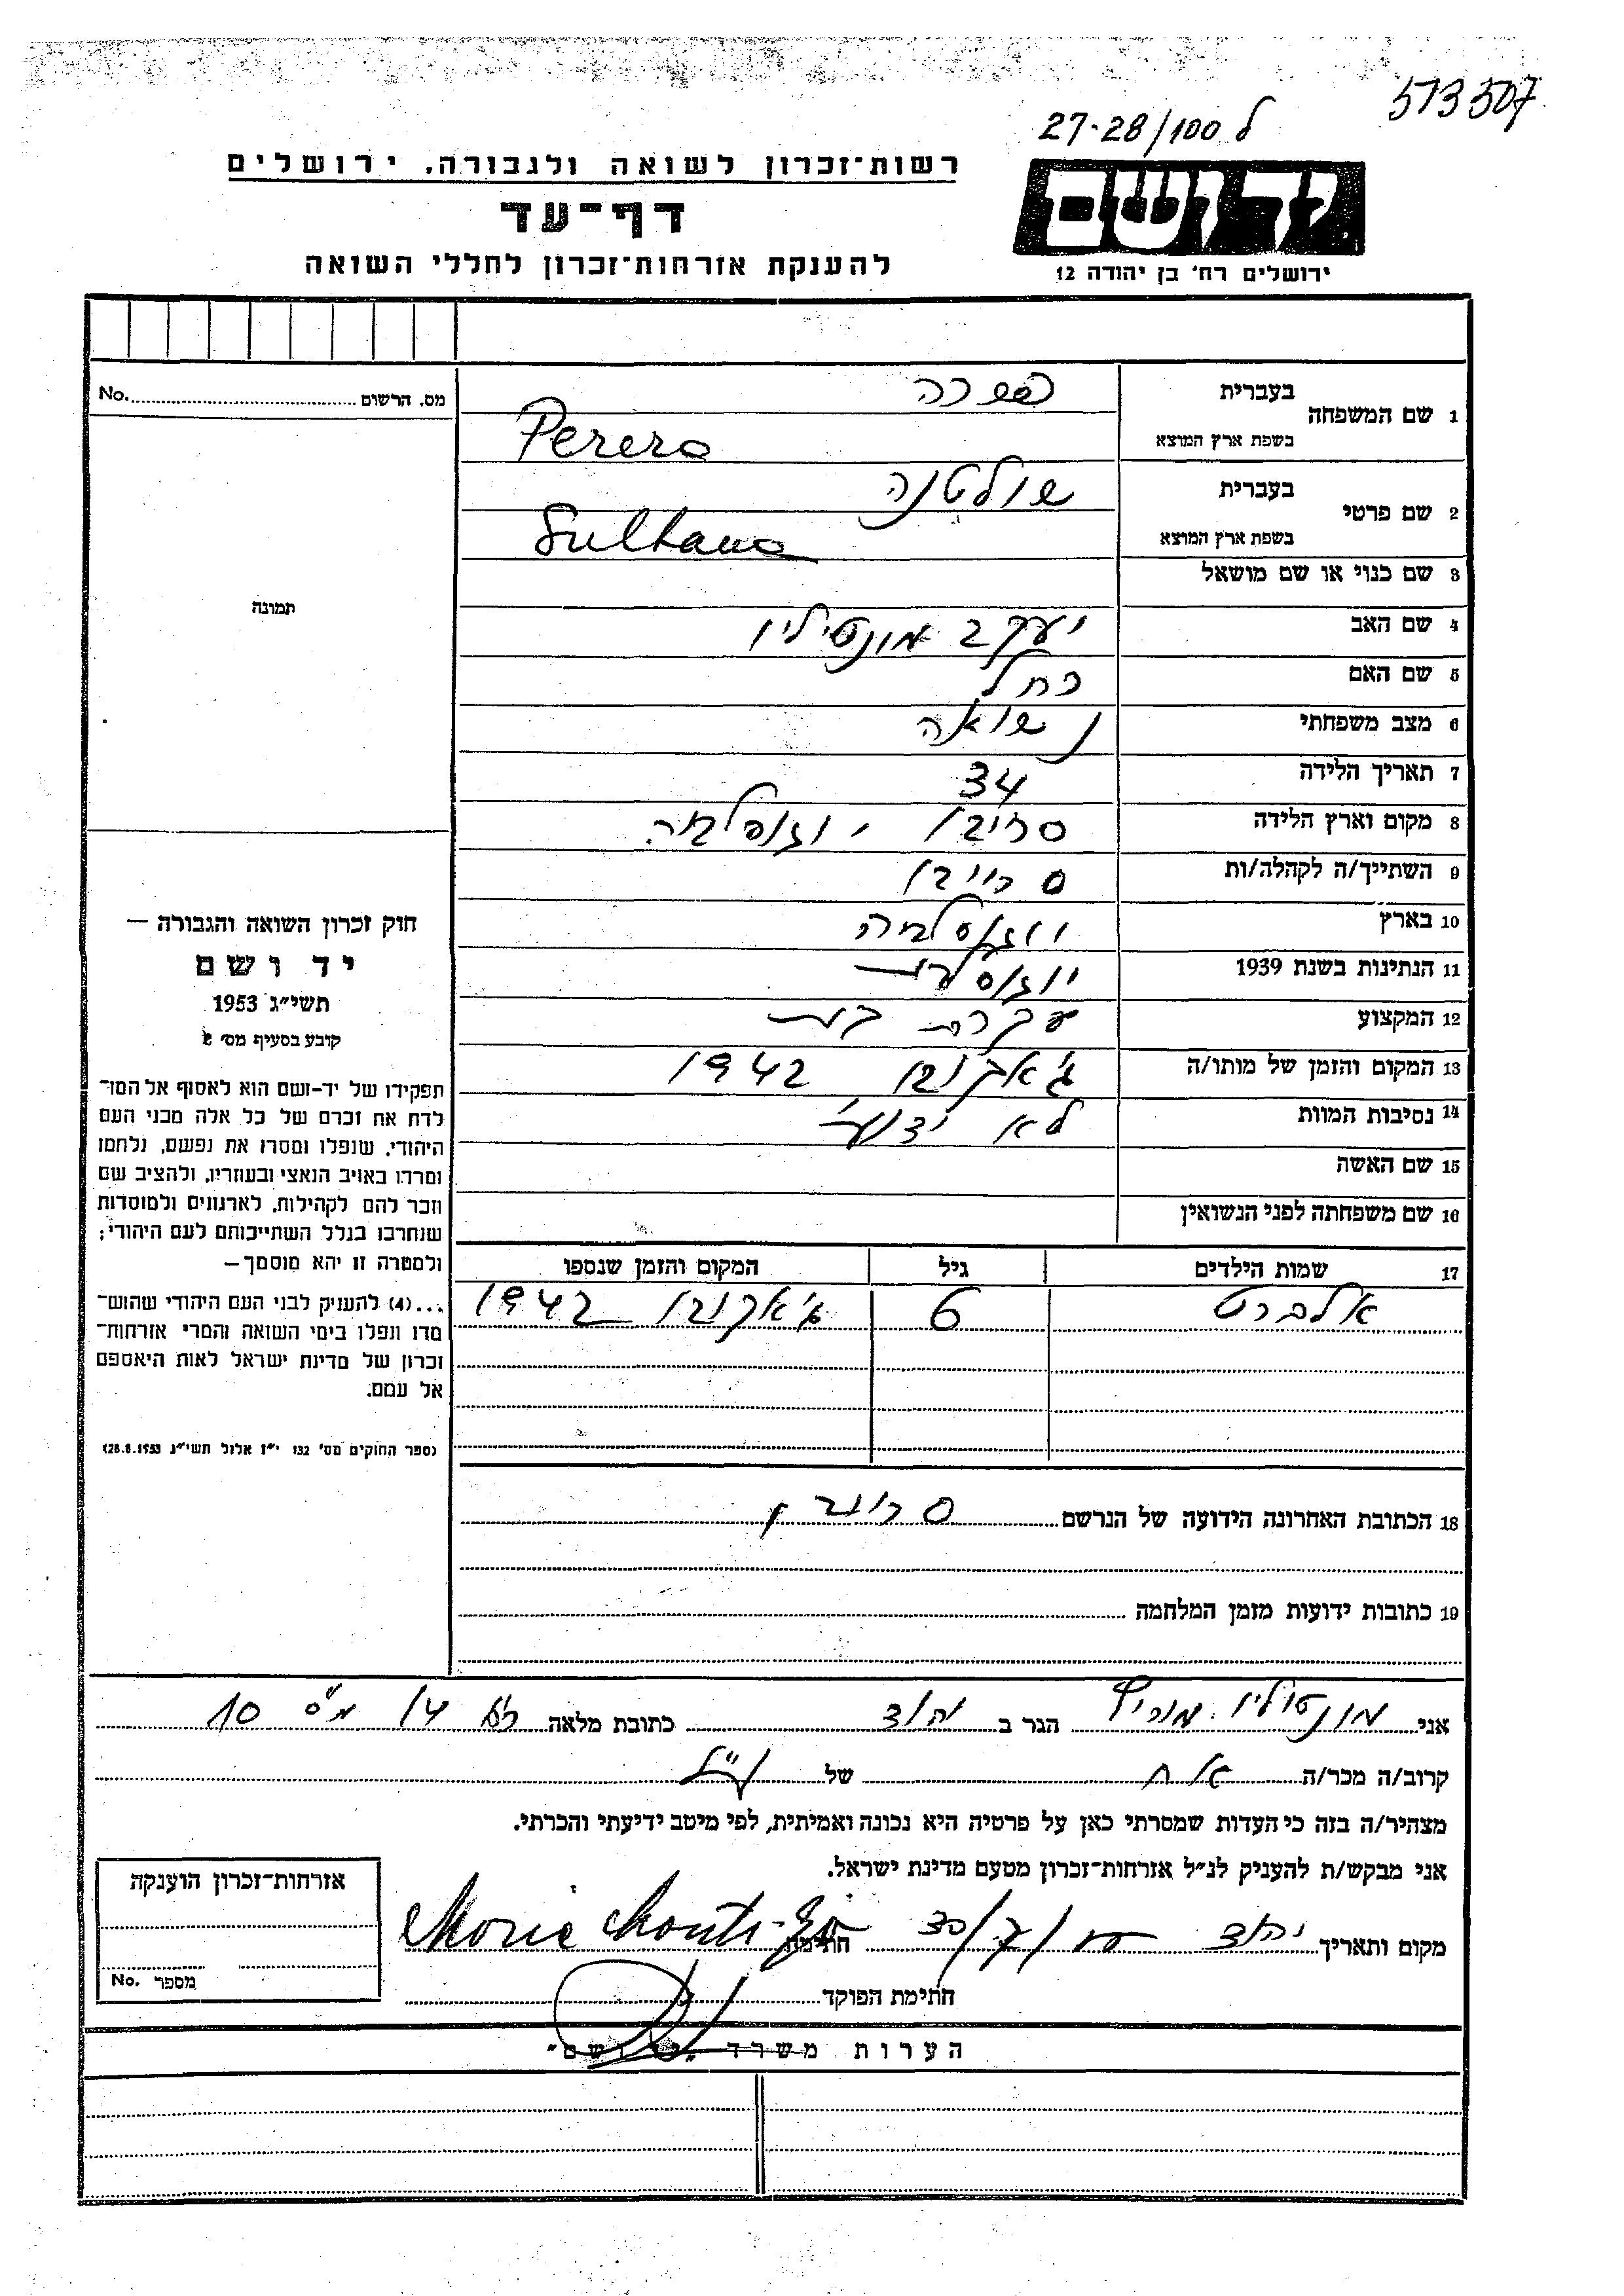 573507
ל 27-28/100
יד ושם
ירושלים רח' בן יהודה 12
רשות־זכרון לשואה ולגבורה, ירושלים
דף־עד
להענקת אזרחות־זכרון לחללי השואה
מס. הרשום No.
תמונה
1 שם המשפחה בעברית פררה
בשפת ארץ המוצא Perera
2 שם פרטי בעברית שולטנה
בשפת ארץ המוצא Sultana
3 שם כנוי או שם מושאל
4 שם האב יעקב מונטיליו
5 שם האם רחל
6 מצב משפחתי נשואה
7 תאריך הלידה 34
8 מקום וארץ הלידה
9 השתייך/ה לקהלה/ות
10 בארץ
11 הנתינות בשנת 1939
12 המקצוע עקרת בית
13 המקום והזמן של מותו/ה 1942
14 נסיבות המוות לא ידוע
15 שם האשה
16 שם משפחתה לפני הנשואין
17 שמות הילדים גיל המקום והזמן שנספו
אלברט 1942
18 הכתובת האחרונה הידועה של הנרשם
19 כתובות ידועות מזמן המלחמה
חוק זכרון השואה והגבורה —
יד ושם
תשי"ג 1953
קובע בסעיף מס' 2
תפקידו של יד-ושם הוא לאסוף אל המו־
לדת את זכרם של כל אלה מבני העם
היהודי, שנפלו ומסרו את נפשם, נלחמו
ומרדו באויב הנאצי ובעוזריו, ולהציב שם
וזכר להם לקהילות, לארגונים ולמוסדות
שנחרבו בגלל השתייכותם לעם היהודי;
ולמטרה זו יהא מוסמך —
...(4) להעניק לבני העם היהודי שהוש־
מדו ונפלו בימי השואה והמרי אזרחות־
זכרון של מדינת ישראל לאות היאספם
אל עמם.
(ספר החוקים מס' 132 י"ז אלול תשי"ג 28.8.1953)
אני מונטיליו מוריץ הגר ב יהוד כתובת מלאה 14 מס 10
קרוב/ה מכר/ה אח של הנ"ל
מצהיר/ה בזה כי העדות שמסרתי כאן על פרטיה היא נכונה ואמיתית, לפי מיטב ידיעתי והכרתי.
אני מבקש/ת להעניק לנ"ל אזרחות־זכרון מטעם מדינת ישראל.
מקום ותאריך יהוד חתימה
חתימת הפוקד
אזרחות־זכרון הוענקה
מספר No.
הערות משרד "יד ושם"